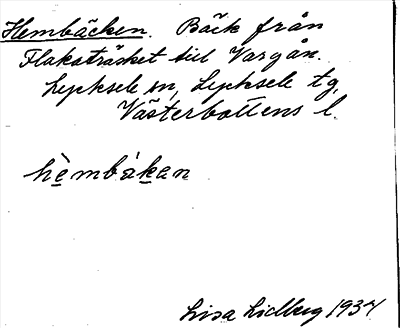 Hembäcken. Bäck från
Flakaträsket till Vargån.
Lycksele sn, Lycksele tg,
Västerbottens l.
hèmbäkan
Lisa Lidberg 1937